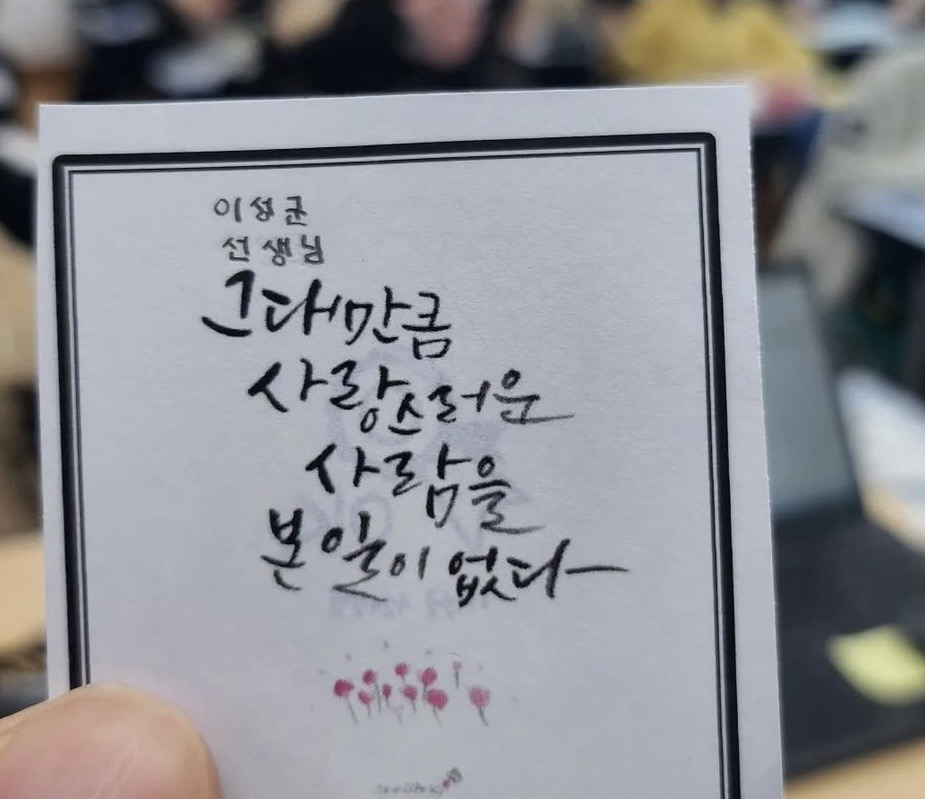 이성균
선생님
그대만큼
사랑스러운
사람을
본 일이 없다